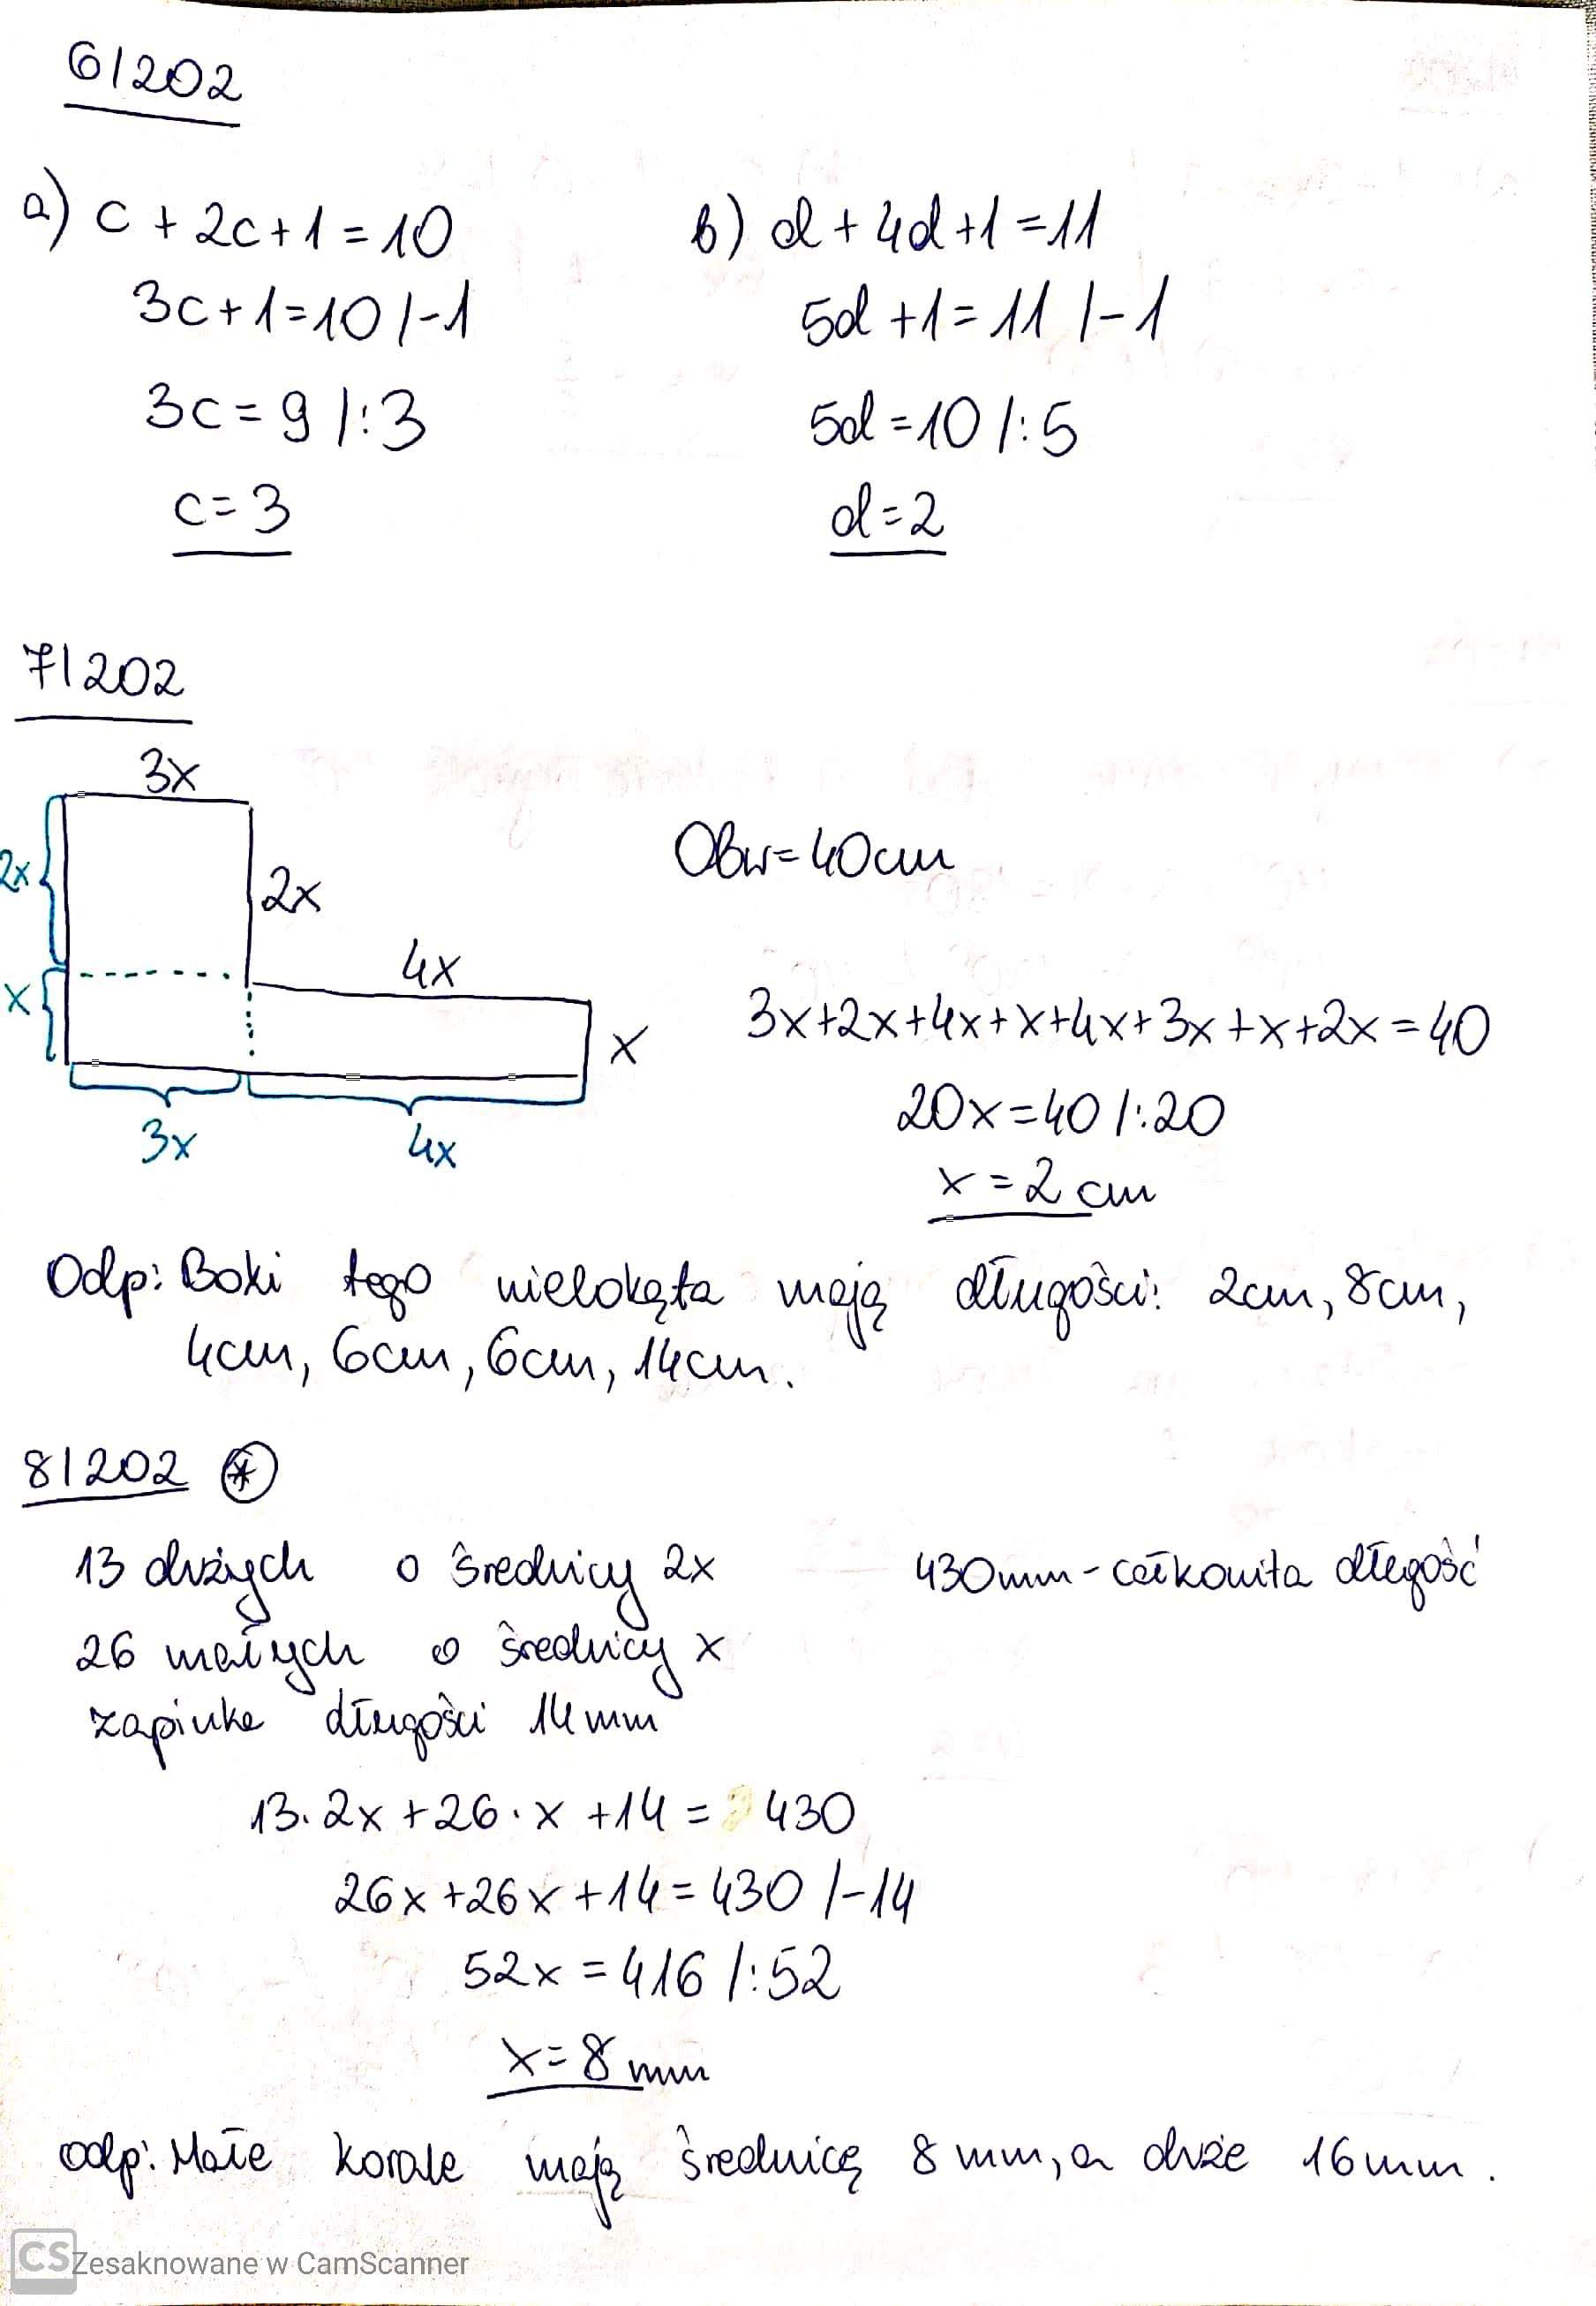 6/202
a) c + 2c + 1 = 10
3c + 1 = 10 /-1
3c = 9 /:3
c = 3
b) d + 4d + 1 = 11
5d + 1 = 11 /-1
5d = 10 /:5
d = 2
7/202
3x
2x
2x
4x
x
x
3x
4x
Obw = 40cm
3x+2x+4x+x+4x+3x+x+2x = 40
20x = 40 /:20
x = 2 cm
Odp: Boki tego wielokąta mają długości: 2cm, 8cm,
4cm, 6cm, 6cm, 14cm.
8/202 *
13 dużych o średnicy 2x
430mm - całkowita długość
26 małych o średnicy x
zapinka długości 14mm
13 · 2x + 26 · x + 14 = 430
26x + 26x + 14 = 430 /-14
52x = 416 /:52
x = 8 mm
odp: Małe korale mają średnicę 8 mm, a duże 16mm.
CS Zesaknowane w CamScanner